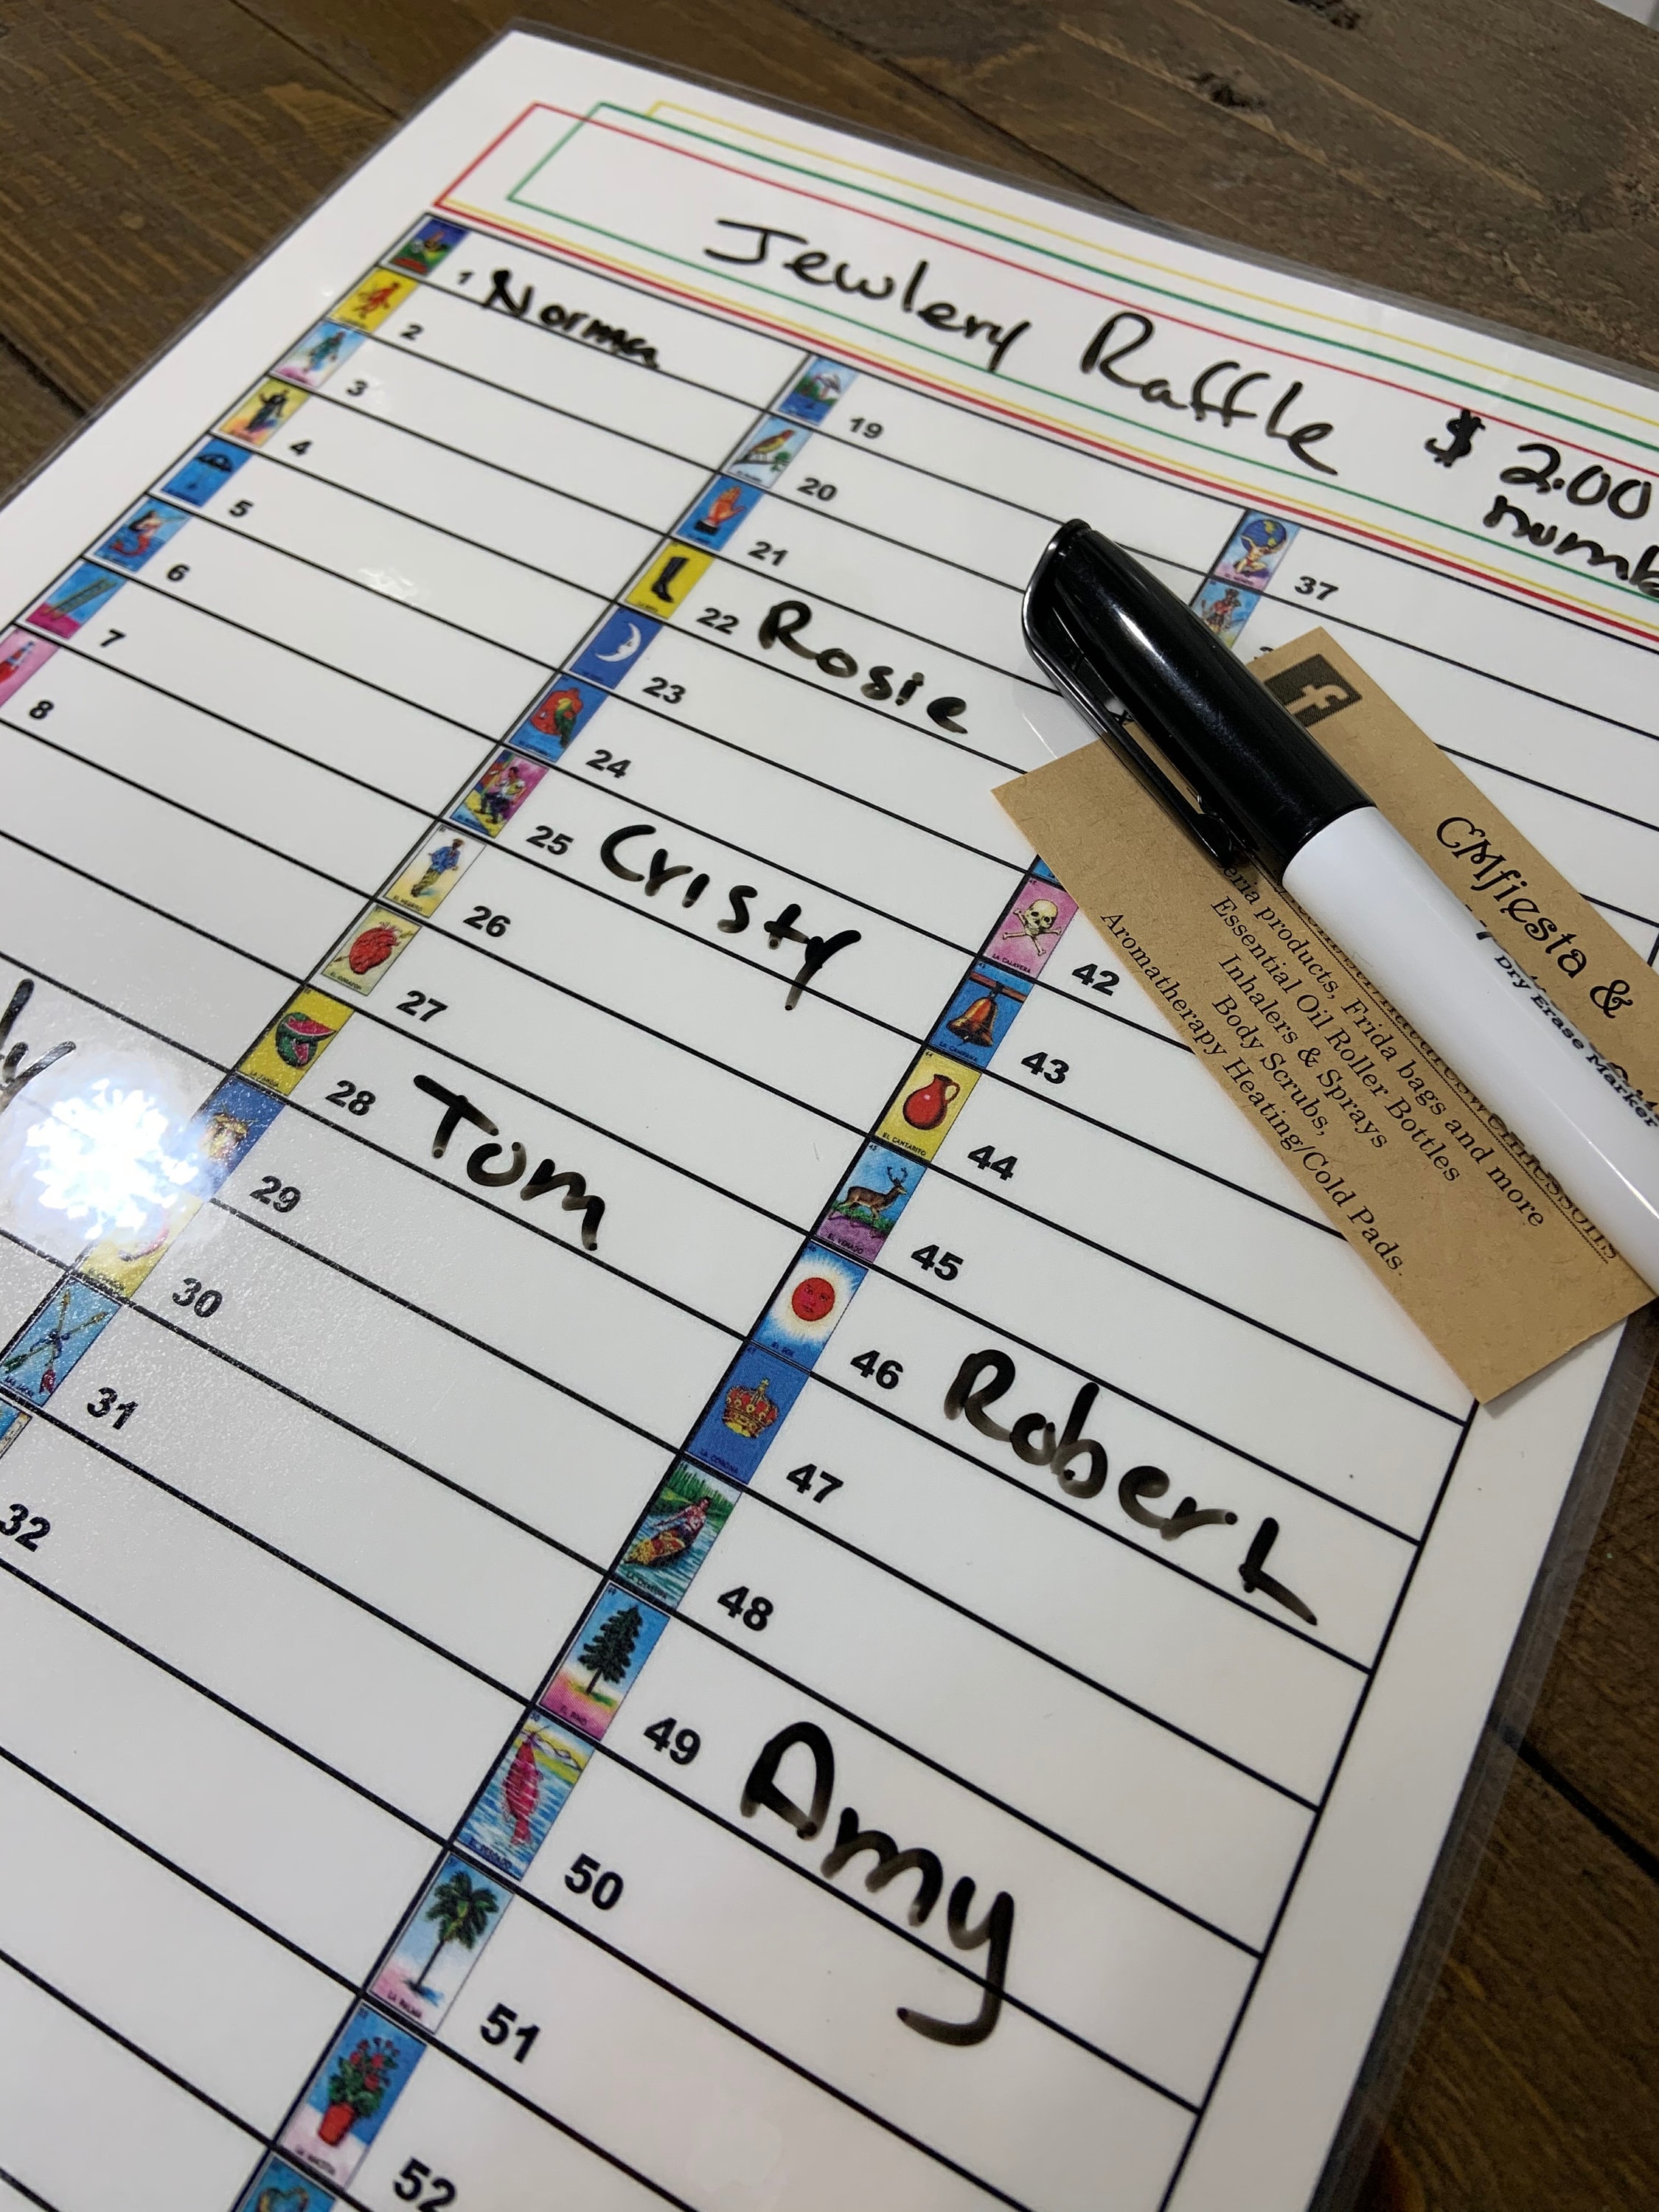 Jewlery Raffle $ 2.00
1 Norma
2
3
4
5
6
7
8
19
20
21
22 Rosie
23
24
25 Cristy
26
27
28 Tom
29
30
31
32
37
42
43
44
45
46 Robert
47
48
49 Amy
50
51
52
LA CALAVERA
LA CAMPANA
EL CANTARITO
EL VENADO
EL SOL
LA CORONA
EL PINO
LA PALMA
f
CMfiesta &
products, Frida bags and more
Essential Oil Roller Bottles
Inhalers & Sprays
Body Scrubs,
Aromatherapy Heating/Cold Pads.
Dry Erase Marker